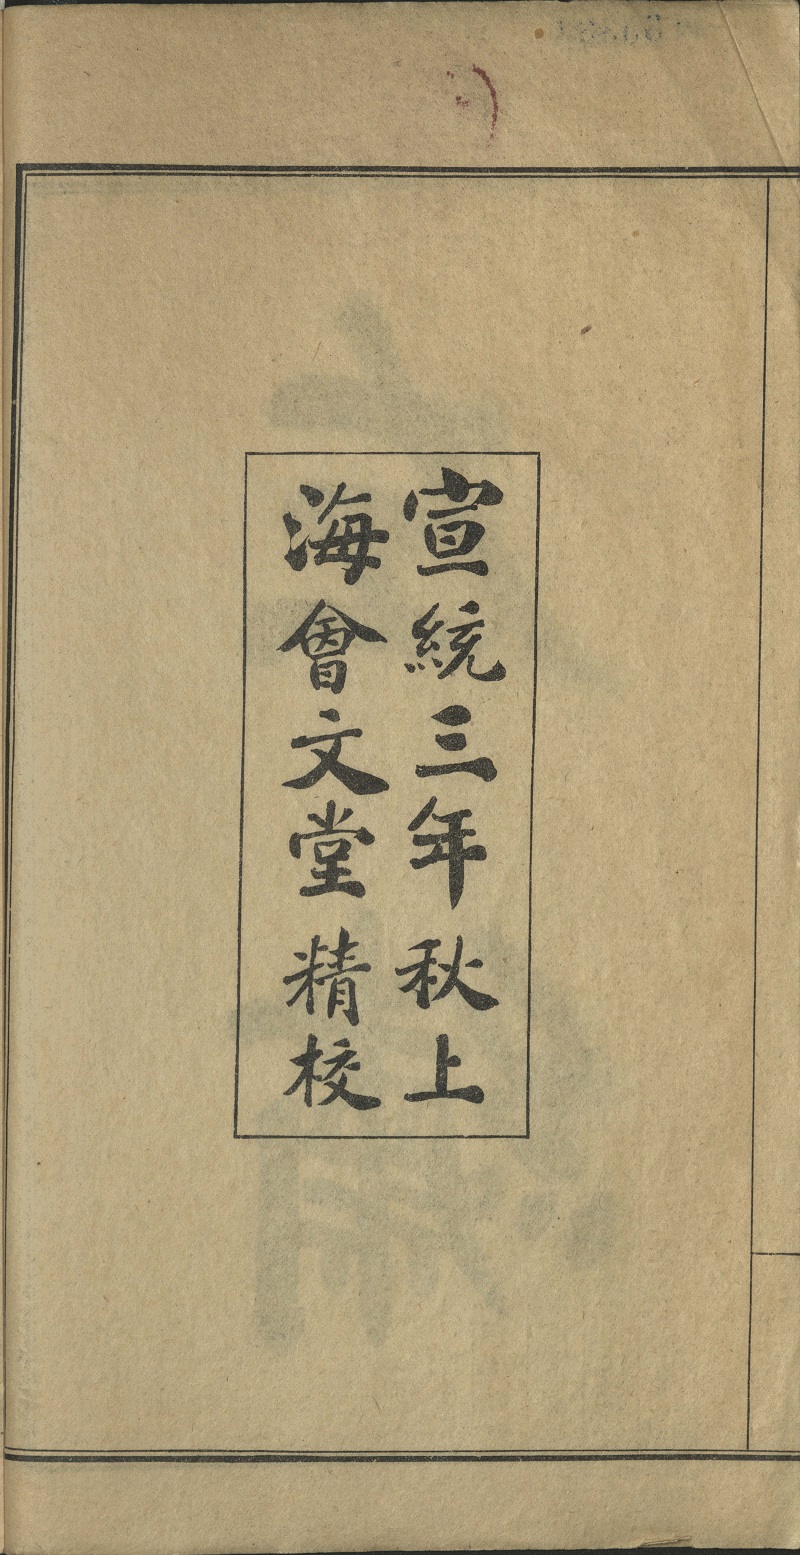 宣統三年秋上
海會文堂精校